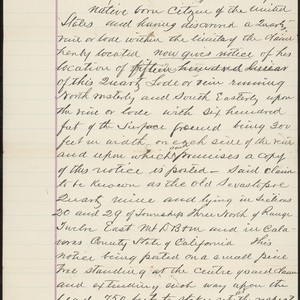 native born Citizen of the United
States and having discovered a Quartz
vein or lode within the limits of the Claim
hereby located now gives notice of his
location of fifteen hundred linear
of this Quartz Lode or vein running
North westerly and South Easterly upon
the vein or lode with six hundred
feet of the surface ground being 300
feet in width on each side of the vein
and upon which premises a copy
of this notice is posted - Said Claim
to be known as the Old Sevastopol
Quartz mine and lying in Sections
20 and 29 of Township Three North of Range
Twelve East M D B &M and in Cala-
veras County State of California This
notice being posted on a small pine
tree standing at the Centre of said Claim
and extending each way upon the
lead 750 feet to stakes